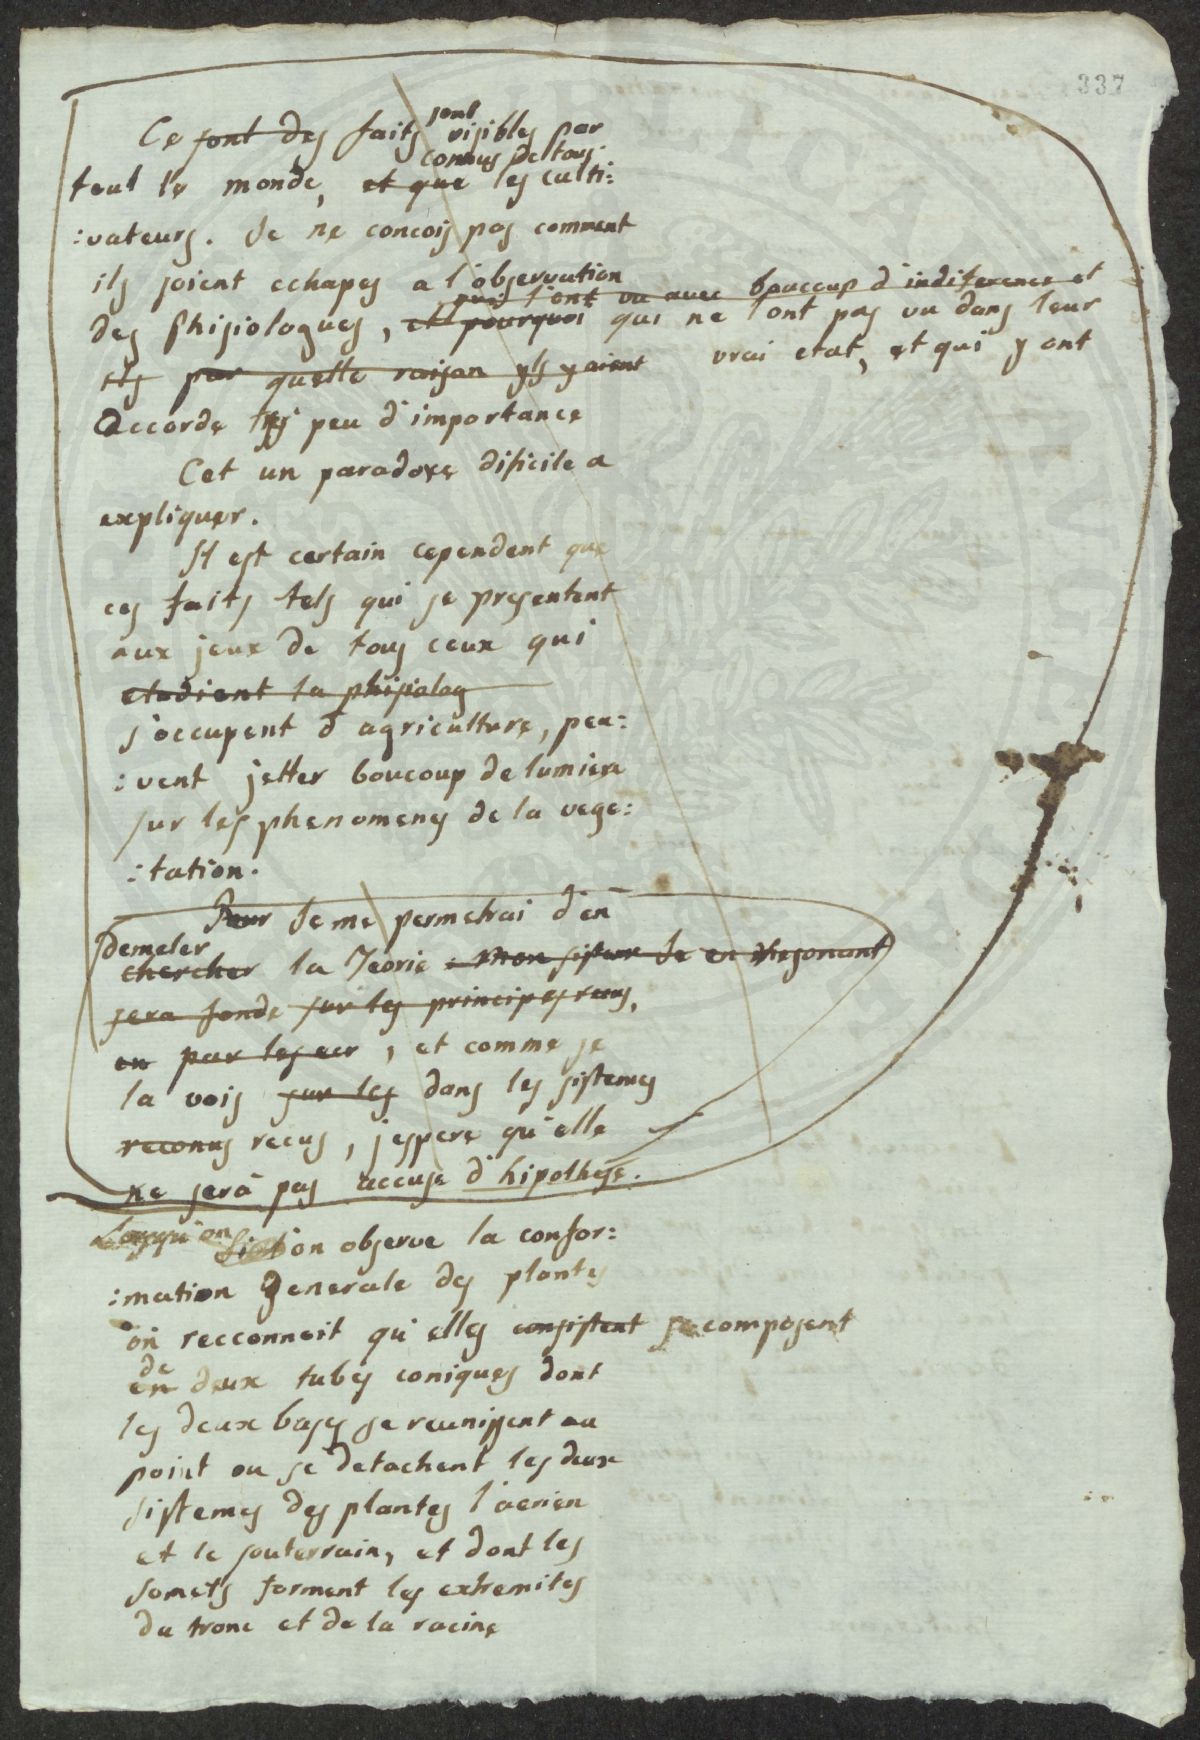 337
Ce sont des faits sont visibles par
connus de tous.
tout le monde, et que les culti:
:vateurs. Je ne concois pas comment
ils soient echapes a l'observation
qui l'ont vu avec boucoup d'indiference et
des Phisiologues, et pourquoi qui ne l'ont pas vu dans leur
vrai etat, et qui y ont
par quelle raison yls y aient
accorde si peu d'importance
Cet un paradoxe dificile a
expliquer.
Il est certain cependent que
ces faits tels qui se presentent
aux jeux de tous ceux qui
etudient la phisiolog
s'occupent d'agriculture, peu:
:vent jetter boucoup de lumiere
sur les phenomenes de la vege:
:tation.
Pour Je me permetrai d'en
demeler
chercher la Teorie. Mon sisteme Je en Resonant
sera fonde sur les principes recus,
en par les, et comme je
la vois sur les dans les sistemes
reconus recus, j'espere qu'elle
ne serà pas accuse d'hipothese.
Lorsqu'on
Si l'on observe la confor:
:mation generale des plantes
on recconnoit qu'elles consistent se composent
de
en deux tubes coniques dont
les deux bases se reunissent au
point ou se detachent les deux
sistemes des plantes l'aerien
et le souterrain, et dont les
somets forment les extremites
du tronc et de la racine